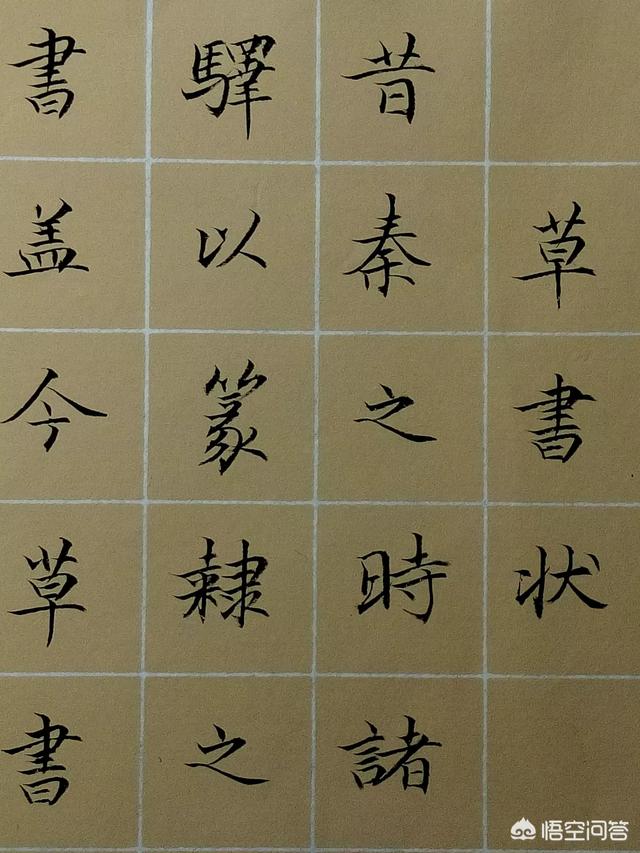 草書状
昔秦之時諸
驛以篆隷之
書盖今草書
悟空问答